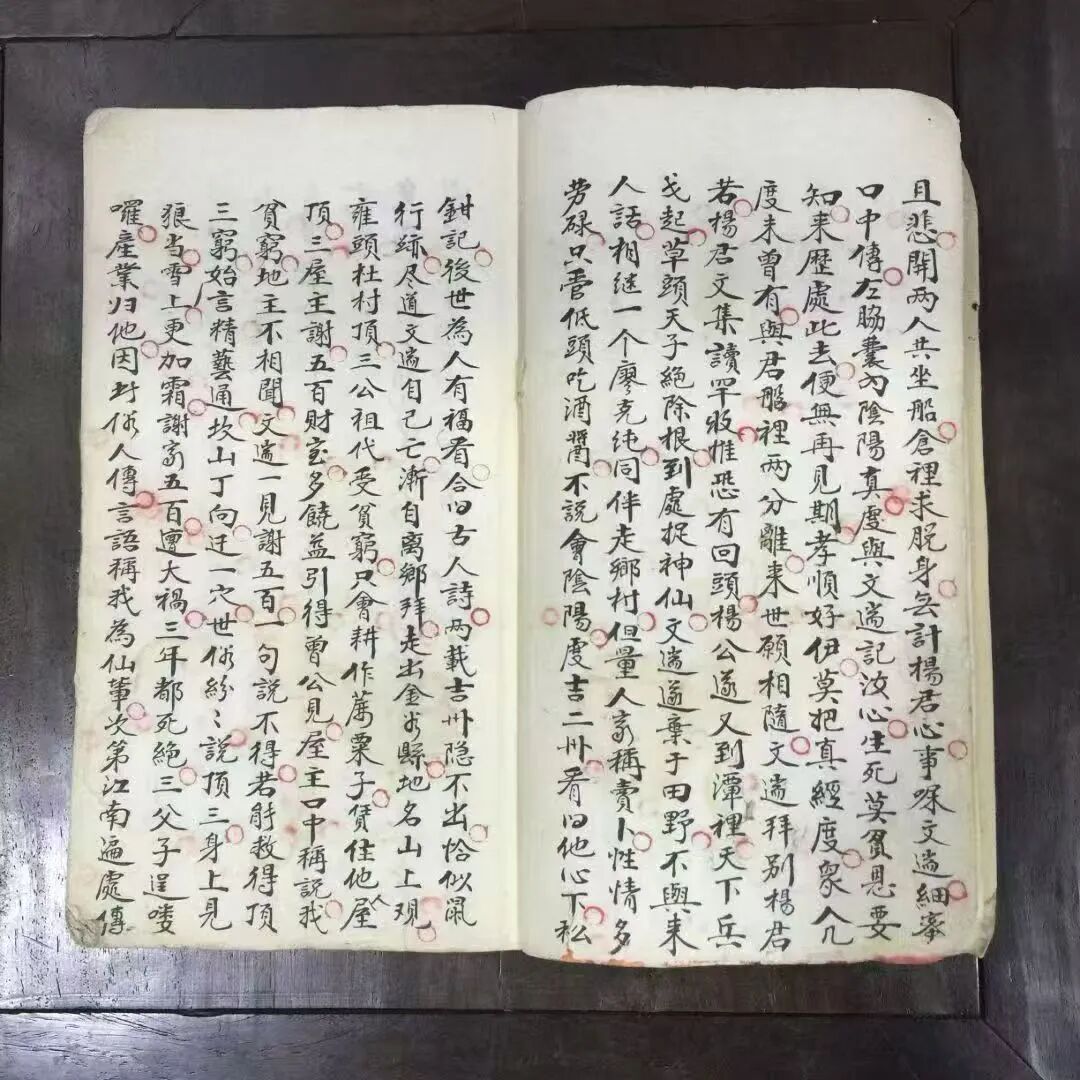 且悲開两人共坐船倉裡求脱身無計楊君心事啋文遄細搴
口中傳左脇囊內陰陽真虔與文遄記汝心生死莫貧恩要
知来歷處此去便無再見期孝順好伊莫把真經度衆人兀
度未曾有與君船裡两分離来世願相隨文遄拜别楊君
若楊君文集讀罕收惟恐有回頭楊公遂又到潭裡天下兵
戈起草頭天子絕除根到處捉神仙文遄遂棄于田野不與来
人話相継一个廖克纯同伴走鄉村但量人家稱賣卜性情多
劳碌只管低頭吃酒醬不說會陰陽虔吉二卅看曰他心下松
鉗記後世為人有福看合曰古人詩两載吉卅隐不出恰似鼠
行跡尽道文遄自己亡漸自离鄉拜走出金劣縣地名山上观
雍頭杜村頂三公祖代受貧窮只會耕作萬粟子賃住他人屋
頂三屋主謝五百財宝多饒益引得曾公見屋主口中稱說我
貧窮地主不相聞文遄一見謝五百一句說不得若能救得頂
三窮始言精藝通坎山丁向迁一穴世俗紛〻說頂三身上見
狼当雪上更加霜謝家五百遭大禍三年都死絕三父子逞喽
囉產業归他因对俗人傳言語稱我為仙輩次第江南遍處傳